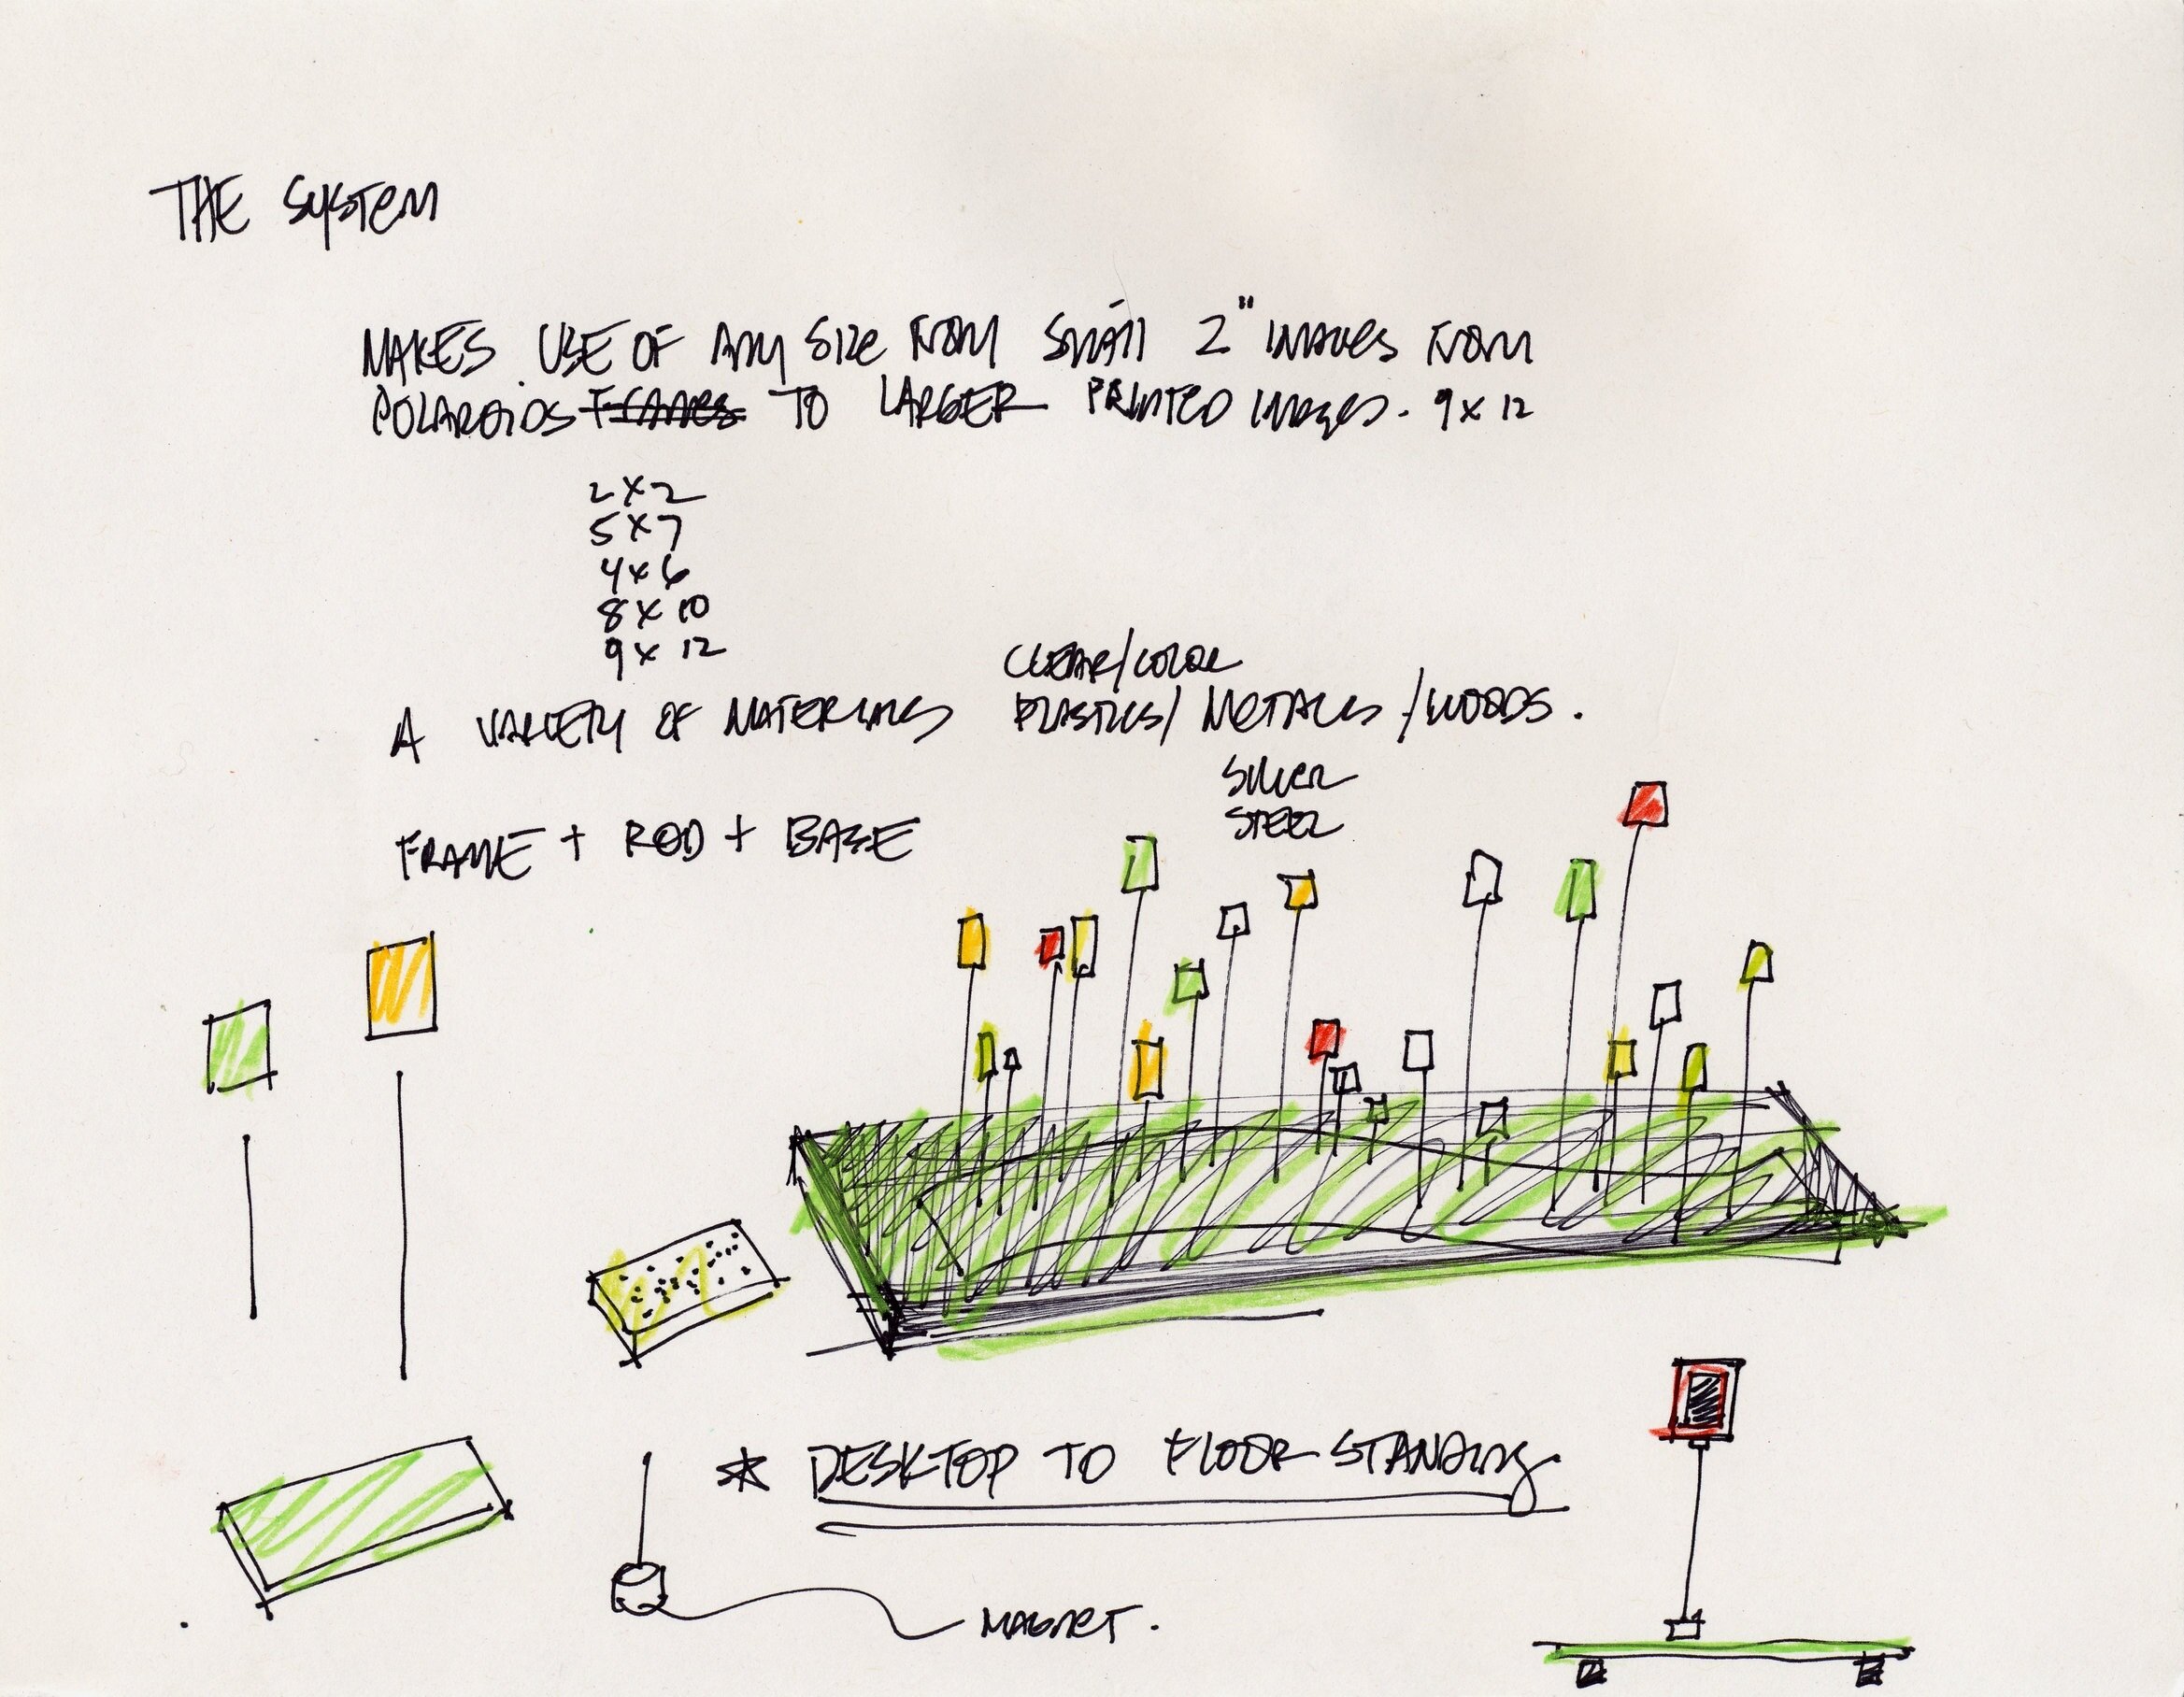 THE SYSTEM
MAKES USE OF ANY SIZE FROM SMALL 2" IMAGES FROM
POLAROIDS FRAMES TO LARGER PRINTED IMAGES. 9 X 12
2 X 2
5 X 7
4 X 6
8 X 10
9 X 12
CLEAR/COLOR
A VARIETY OF MATERIALS PLASTICS/ METALS /WOODS.
SILVER
STEEL
FRAME + ROD + BASE
* DESKTOP TO FLOOR STANDING
MAGNET.